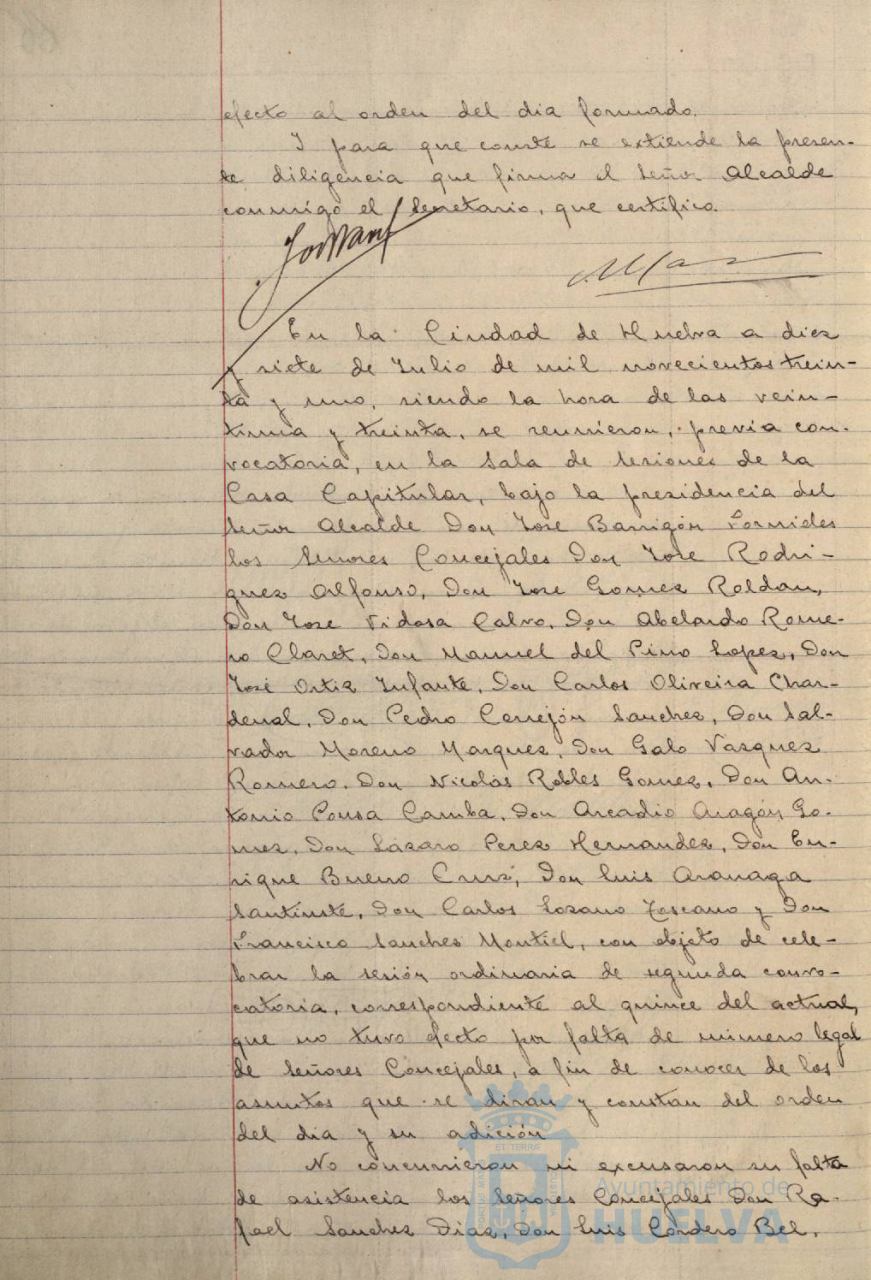 efecto al orden del dia formado.
Y para que conste se extiende la presen-
te diligencia que firma el Señor Alcalde
conmigo el Secretario, que certifico.
En la Ciudad de Huelva a diez
y siete de Julio de mil novecientos trein-
ta y uno, siendo la hora de las vein-
tiuna y treinta, se reunieron, previa con-
vocatoria, en la Sala de Sesiones de la
Casa Capitular, bajo la presidencia del
Señor Alcalde Don Jose Barrigón Fornieles
los Señores Concejales Don Jose Rodri-
guez Alfonso, Don Jose Gomez Roldan,
Don Jose Vidosa Calvo, Don Abelardo Rome-
ro Claret, Don Manuel del Pino Lopez, Don
José Ortiz Infante, Don Carlos Oliveira Char-
denal, Don Pedro Cerrejón Sanchez, Don Sal-
vador Moreno Marquez, Don Galo Vazquez
Romero, Don Nicolás Robles Gomez, Don An-
tonio Pousa Camba, Don Arcadio Aragón Go-
mez, Don Lázaro Perez Hernandez, Don En-
rique Bueno Cruz, Don Luis Aranaga
Santiuste, Don Carlos Lozano Toscano y Don
Francisco Sanchez Montiel, con objeto de cele-
brar la sesión ordinaria de segunda convo-
catoria, correspondiente al quince del actual,
que no tuvo efecto por falta de número legal
de Señores Concejales, a fin de conocer de los
asuntos que se diran y constan del orden
del dia y su adición
No concurrieron ni excusaron su falta
de asistencia los Señores Concejales Don Ra-
fael Sanchez Diaz, Don Luis Cordero Bel.
ET TERRÆ
Ayuntamiento de
HUELVA